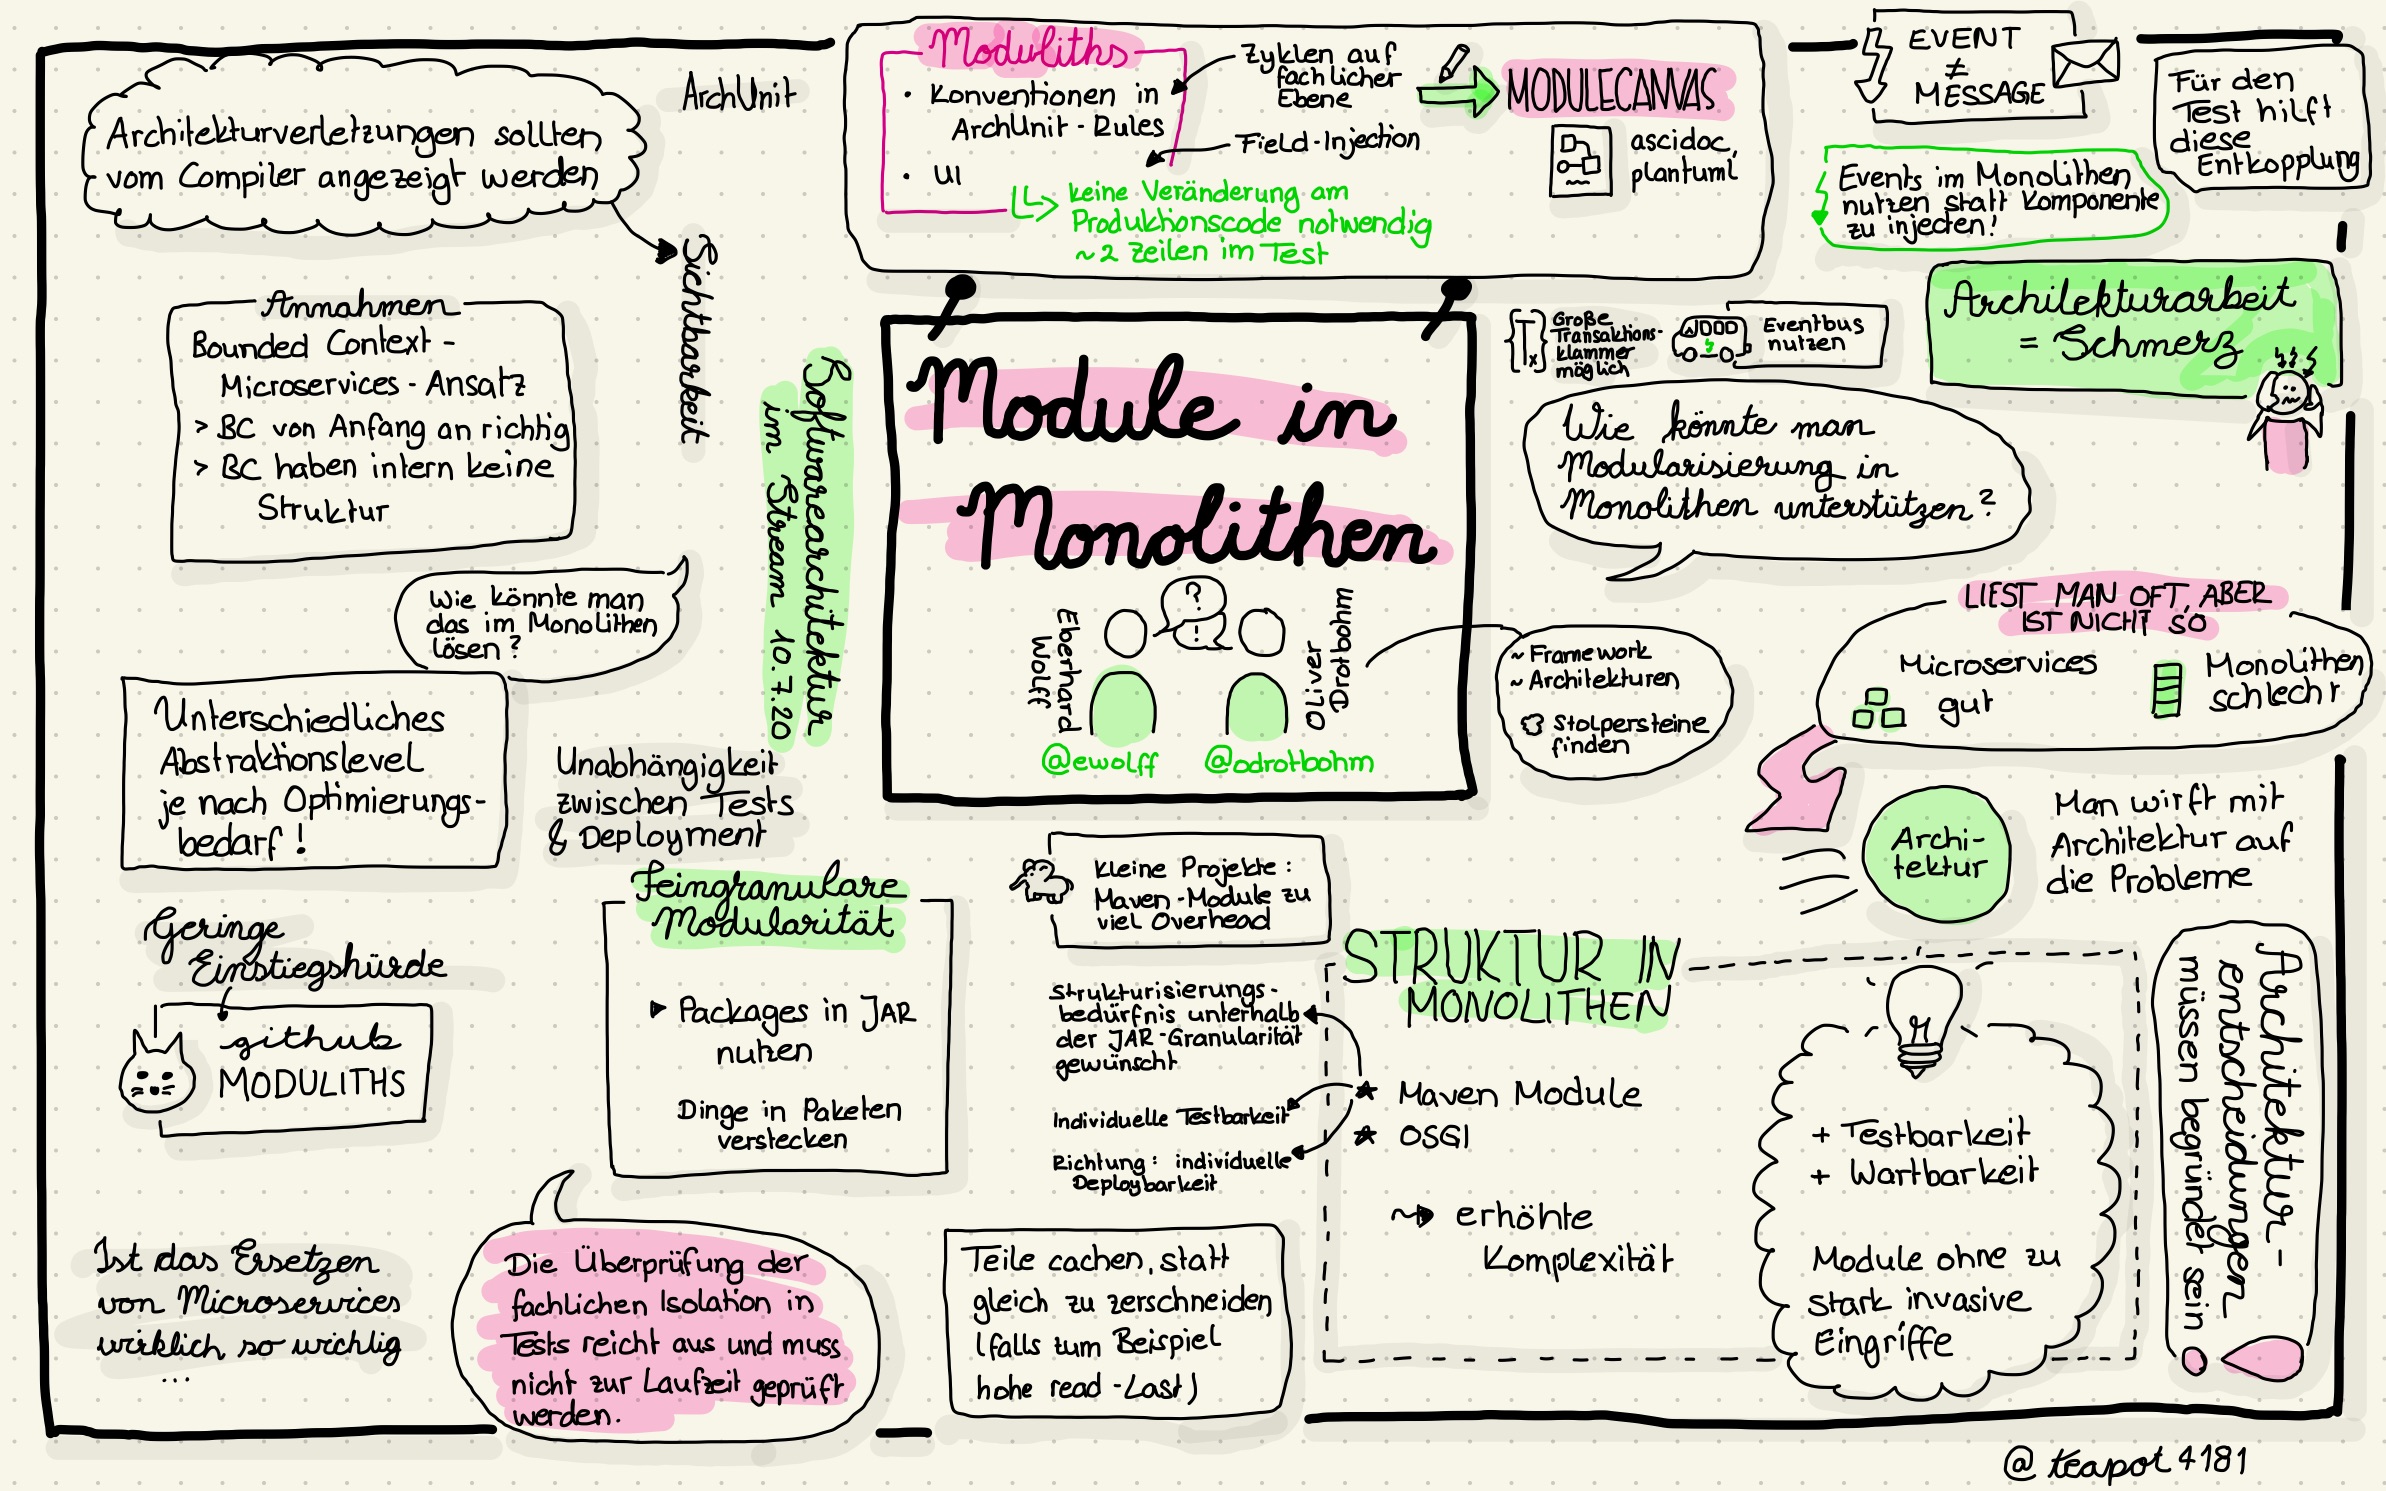 Architekturverletzungen sollten
vom Compiler angezeigt werden
ArchUnit
Sichtbarkeit
Moduliths
• Konventionen in
ArchUnit-Rules
• UI
Zyklen auf
fachlicher
Ebene
Field-Injection
keine Veränderung am
Produktionscode notwendig
~2 Zeilen im Test
MODULECANVAS
ascidoc,
plantuml
EVENT
≠
MESSAGE
Für den
Test hilft
diese
Entkopplung
Events im Monolithen
nutzen statt Komponente
zu injecten!
Architekturarbeit
= Schmerz
Annahmen
Bounded Context -
Microservices - Ansatz
> BC von Anfang an richtig
> BC haben intern keine
Struktur
Wie könnte man
das im Monolithen
lösen?
Softwarearchitektur
im Stream 10.7.20
Module in
Monolithen
Eberhard
Wolff
?
!
Oliver
Drotbohm
@ewolff
@odrotbohm
{Tx}
Große
Transaktions-
klammer
möglich
Eventbus
nutzen
Wie könnte man
Modularisierung in
Monolithen unterstützen?
~ Framework
~ Architekturen
Stolpersteine
finden
LIEST MAN OFT, ABER
IST NICHT SO
Microservices
gut
Monolithen
schlecht
Archi-
tektur
Man wirft mit
Architektur auf
die Probleme
Unterschiedliches
Abstraktionslevel
je nach Optimierungs-
bedarf!
Unabhängigkeit
zwischen Tests
& Deployment
Geringe
Einstiegshürde
github
MODULITHS
Feingranulare
Modularität
Packages in JAR
nutzen
Dinge in Paketen
verstecken
Kleine Projekte:
Maven-Module zu
viel Overhead
Strukturisierungs-
bedürfnis unterhalb
der JAR-Granularität
gewünscht
Individuelle Testbarkeit
Richtung: individuelle
Deploybarkeit
STRUKTUR IN
MONOLITHEN
Maven Module
OSGI
erhöhte
Komplexität
+ Testbarkeit
+ Wartbarkeit
Module ohne zu
stark invasive
Eingriffe
Architektur-
entscheidungen
müssen begründet sein
Ist das Ersetzen
von Microservices
wirklich so wichtig
...
Die Überprüfung der
fachlichen Isolation in
Tests reicht aus und muss
nicht zur Laufzeit geprüft
werden.
Teile cachen, statt
gleich zu zerschneiden
(falls zum Beispiel
hohe read-Last)
@teapot4181